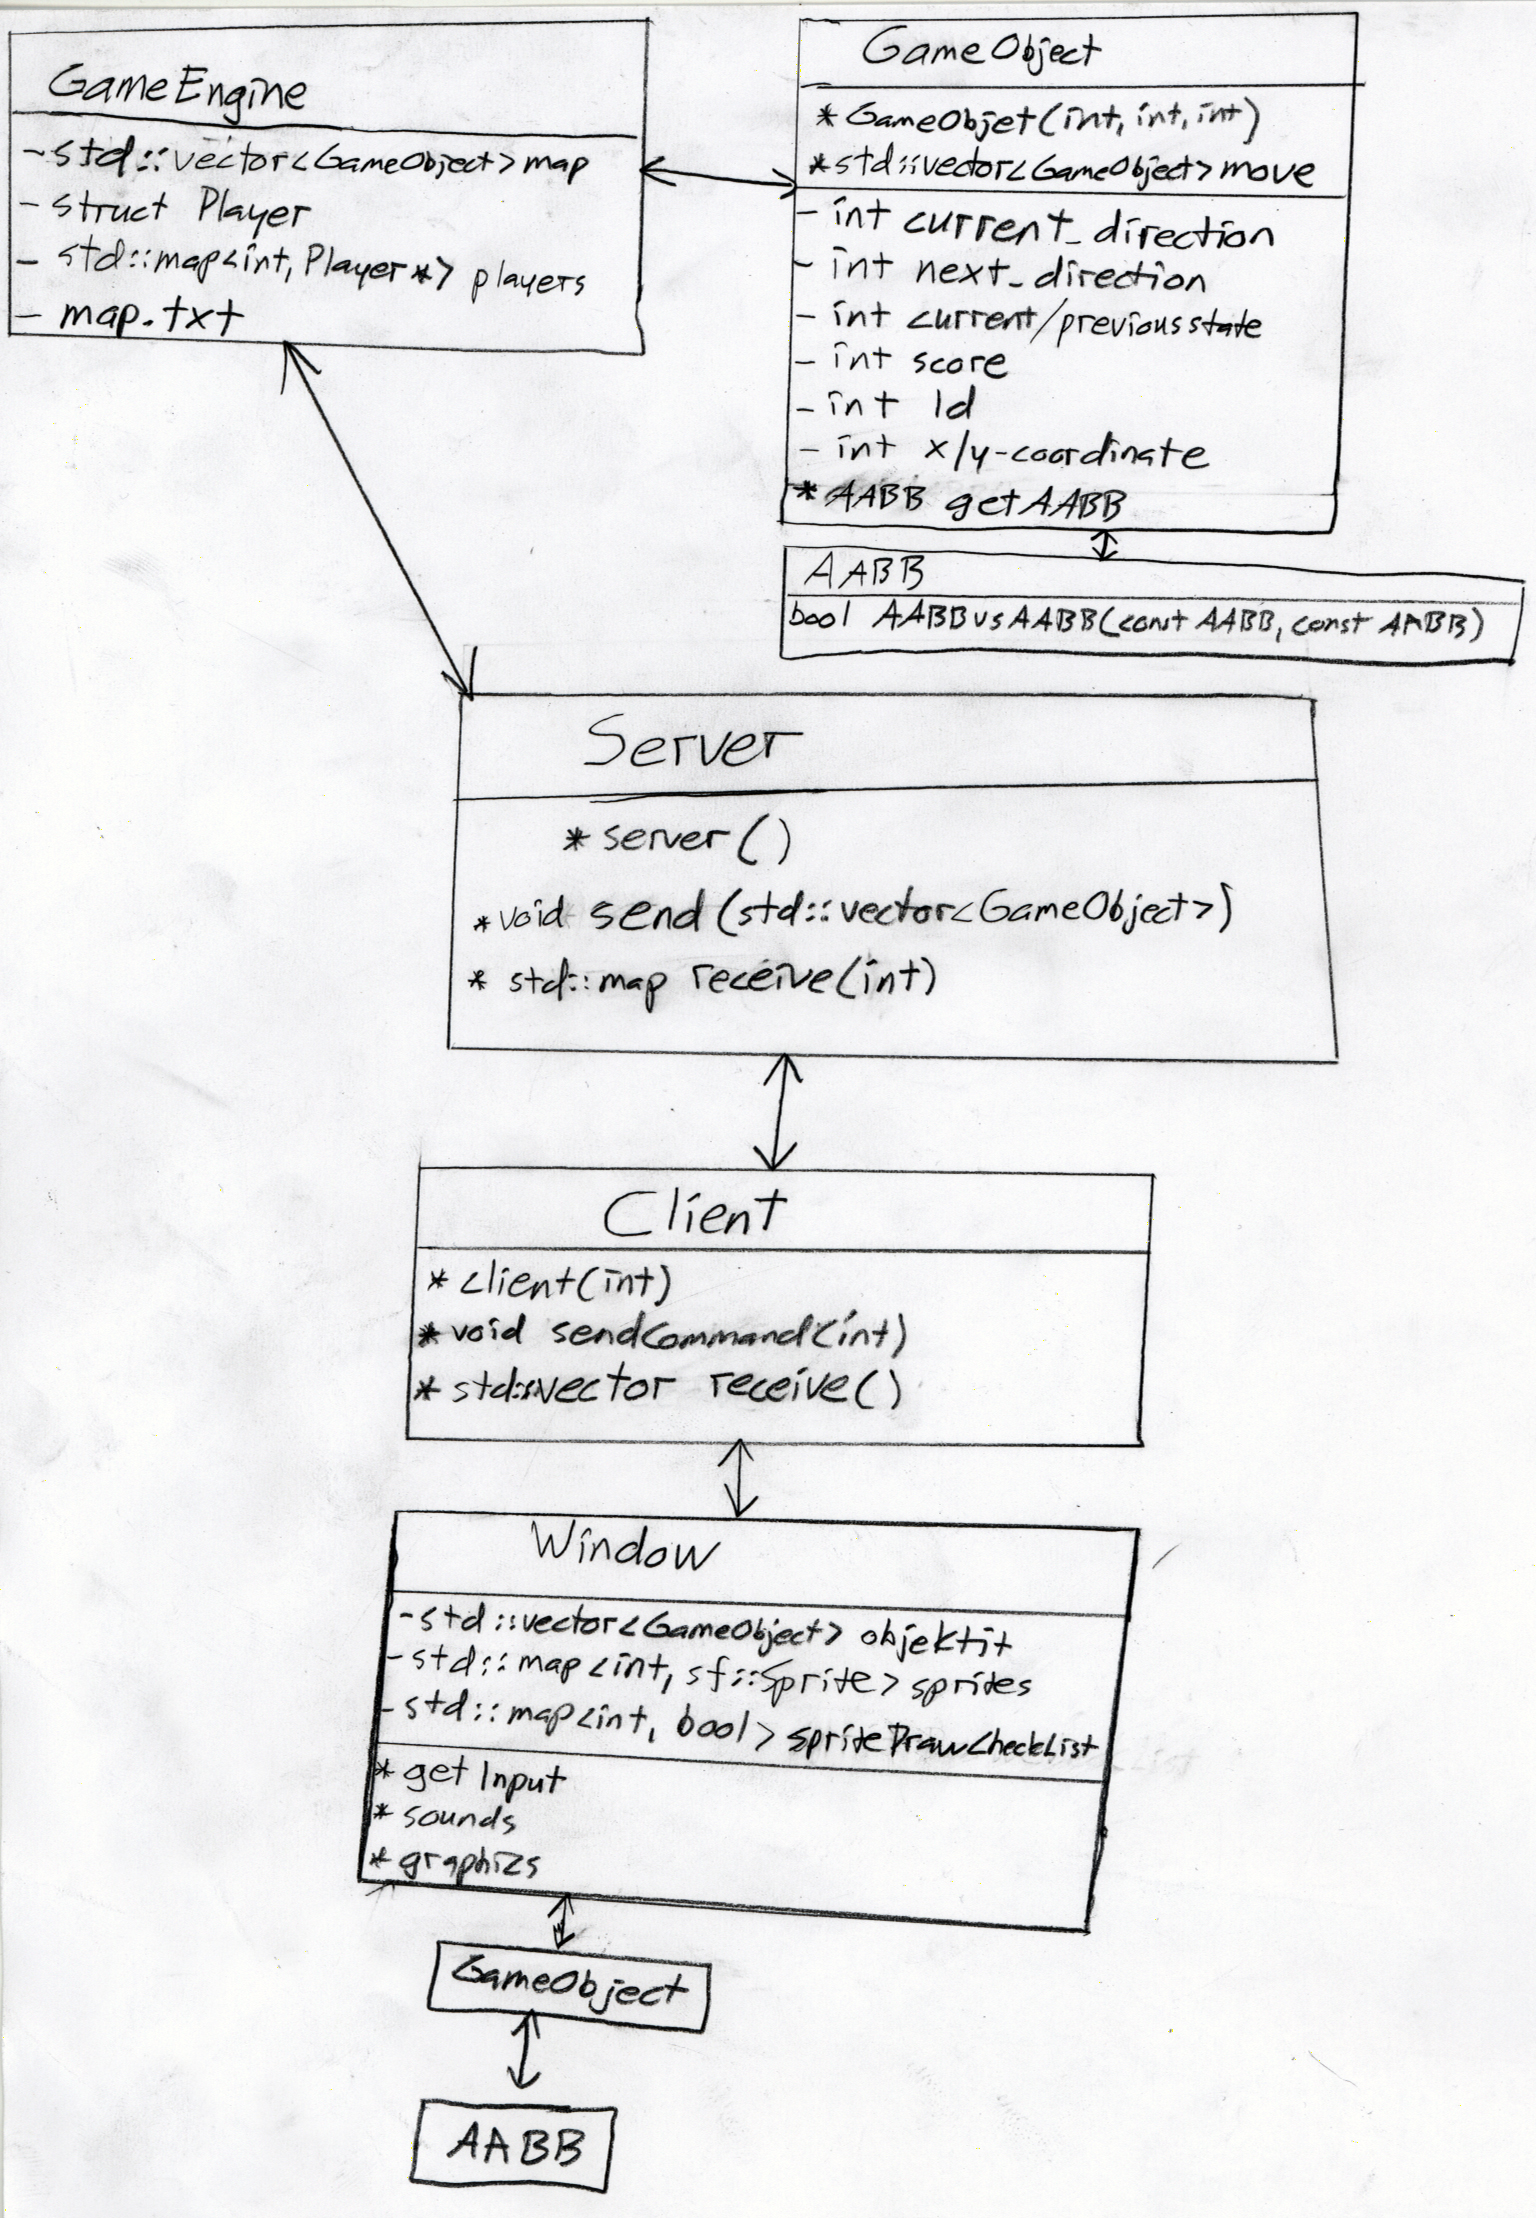 GameEngine
- std::vector<GameObject> map
- struct Player
- std::map<int, Player*> players
- map.txt
GameObject
* GameObjet(int, int, int)
* std::vector<GameObject> move
- int current_direction
- int next_direction
- int current/previousstate
- int score
- int Id
- int x/y-coordinate
* AABB getAABB
AABB
bool AABBvsAABB(const AABB, const AABB)
Server
* server()
* void send(std::vector<GameObject>)
* std::map receive(int)
Client
* client(int)
* void sendCommand(int)
* std::vector receive()
Window
- std::vector<GameObject> objektit
- std::map<int, sf::Sprite> sprites
- std::map<int, bool> spriteDrawCheckList
* getInput
* sounds
* graphics
GameObject
AABB